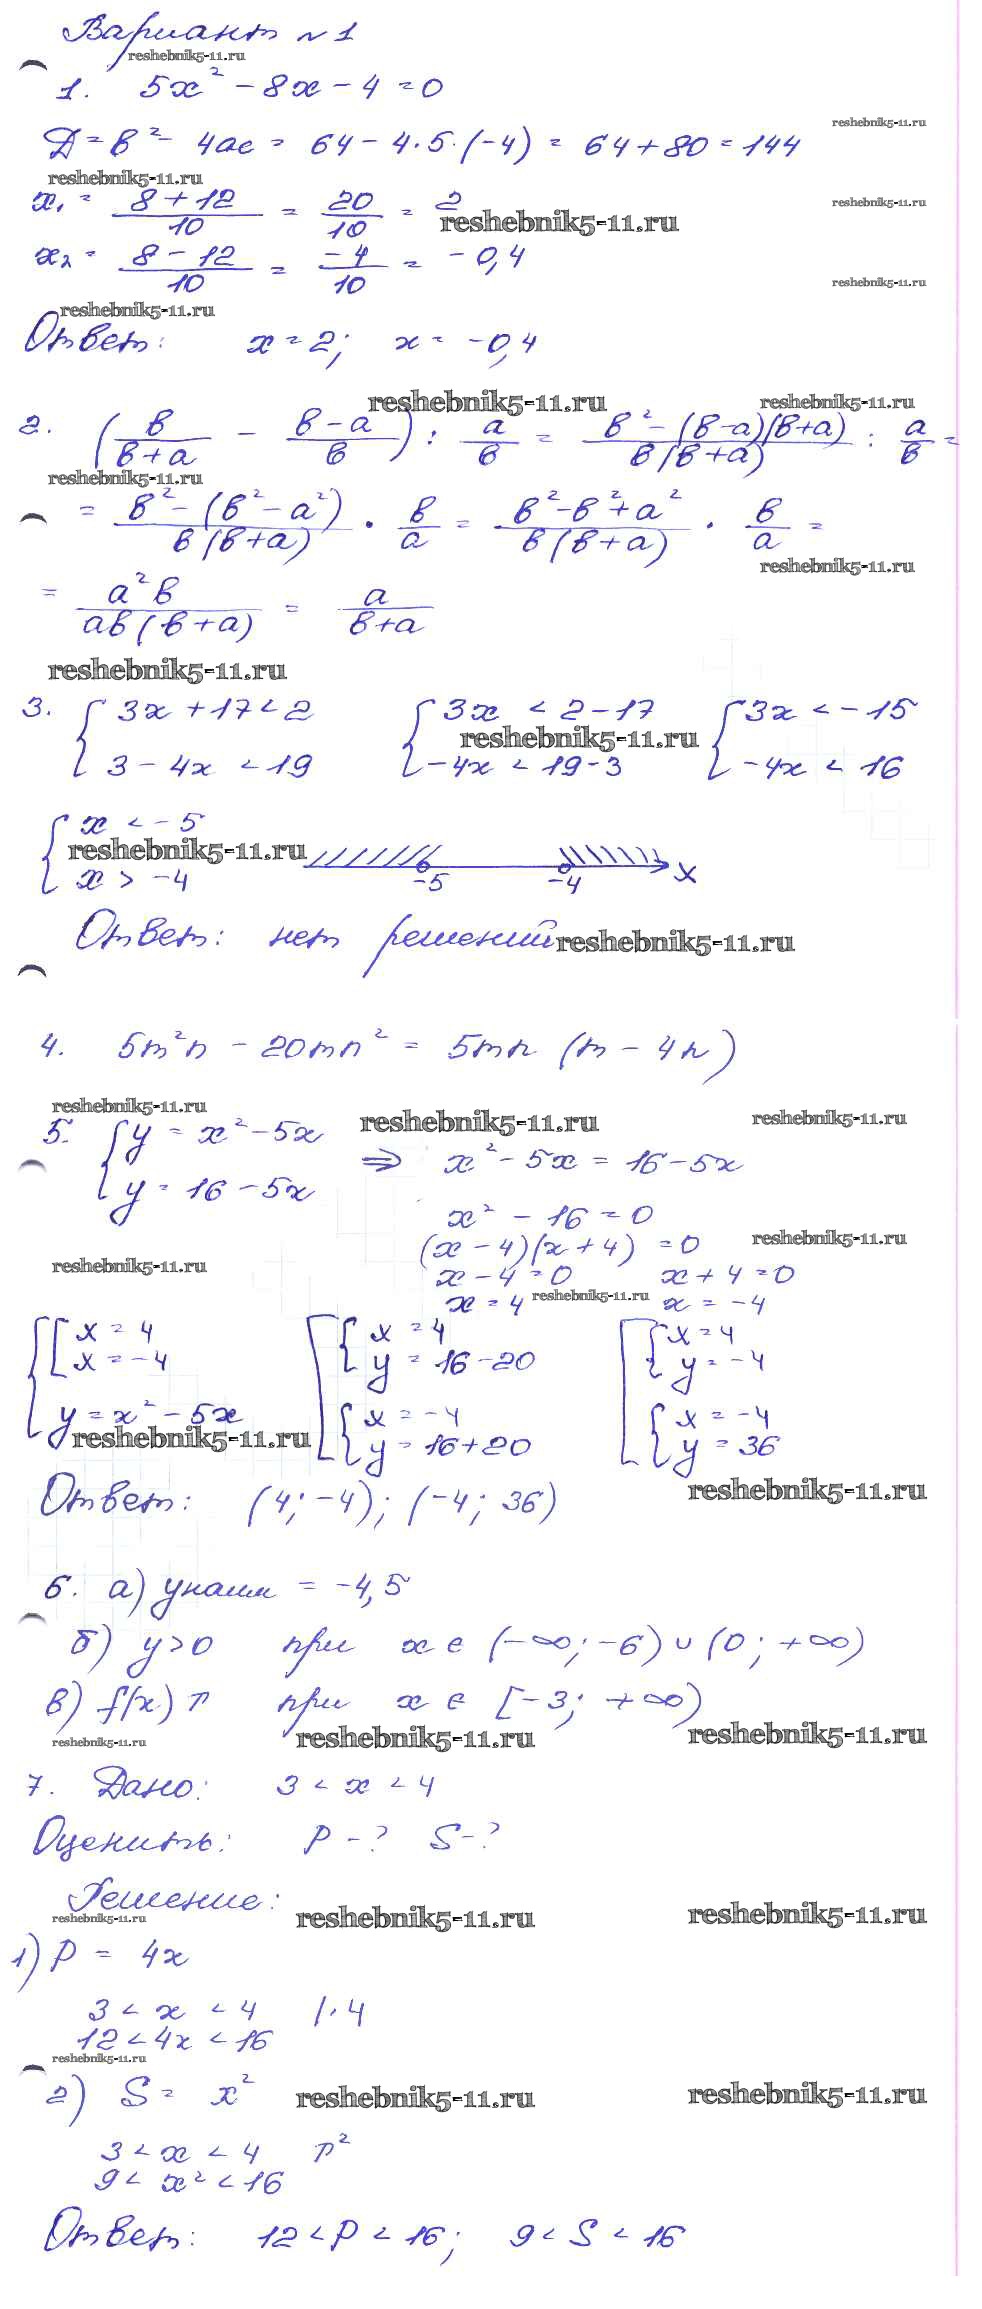 Вариант №1
reshebnik5-11.ru
1. 5x² - 8x - 4 = 0
reshebnik5-11.ru
Д = в² - 4ас = 64 - 4·5·(-4) = 64 + 80 = 144
reshebnik5-11.ru
x₁ = (8 + 12)/10 = 20/10 = 2
reshebnik5-11.ru reshebnik5-11.ru
x₂ = (8 - 12)/10 = -4/10 = -0,4
reshebnik5-11.ru
reshebnik5-11.ru
Ответ: x = 2; x = -0,4
reshebnik5-11.ru reshebnik5-11.ru
2. (в/(в+а) - (в-а)/в) : а/в = (в² - (в-а)(в+а))/(в(в+а)) : а/в =
reshebnik5-11.ru
= (в² - (в² - а²))/(в(в+а)) · в/а = (в² - в² + а²)/(в(в+а)) · в/а =
reshebnik5-11.ru
= а²в/(ав(в+а)) = а/(в+а)
reshebnik5-11.ru
3. { 3x + 17 < 2 { 3x < 2 - 17 { 3x < -15
reshebnik5-11.ru
3 - 4x < 19 -4x < 19 - 3 -4x < 16
{ x < -5
reshebnik5-11.ru
x > -4 -5 -4 x
Ответ: нет решений
reshebnik5-11.ru
4. 5m²n - 20mn² = 5mn (m - 4n)
reshebnik5-11.ru reshebnik5-11.ru reshebnik5-11.ru
5. { y = x² - 5x
⇒ x² - 5x = 16 - 5x
y = 16 - 5x
x² - 16 = 0
reshebnik5-11.ru
(x - 4)(x + 4) = 0
reshebnik5-11.ru
x - 4 = 0 x + 4 = 0
reshebnik5-11.ru
x = 4 x = -4
{ [ x = 4 [ { x = 4 [ { x = 4
x = -4 y = 16 - 20 y = -4
y = x² - 5x { x = -4 { x = -4
reshebnik5-11.ru
y = 16 + 20 y = 36
Ответ: (4; -4); (-4; 36)
reshebnik5-11.ru
6. а) yнаим = -4,5
б) y > 0 при x ∈ (-∞; -6) ∪ (0; +∞)
в) f(x) ↑ при x ∈ [-3; +∞)
reshebnik5-11.ru reshebnik5-11.ru reshebnik5-11.ru
7. Дано: 3 < x < 4
Оценить: P - ? S - ?
Решение:
reshebnik5-11.ru reshebnik5-11.ru reshebnik5-11.ru
1) P = 4x
3 < x < 4 | · 4
12 < 4x < 16
reshebnik5-11.ru
2) S = x²
reshebnik5-11.ru reshebnik5-11.ru
3 < x < 4 ↑²
9 < x² < 16
Ответ: 12 < P < 16; 9 < S < 16